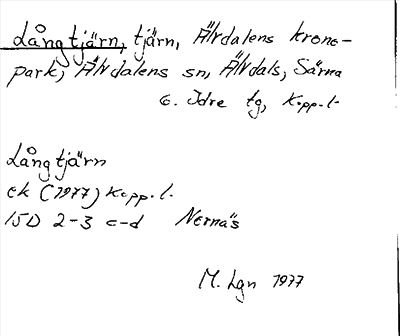 Långtjärn, tjärn, Älvdalens krono-
park, Älvdalens sn, Älvdals, Särna
o. Idre tg, Kopp. l.
Långtjärn
ek (1977) Kopp. l.
15D 2-3 c-d Nornäs
M. Lgn 1977